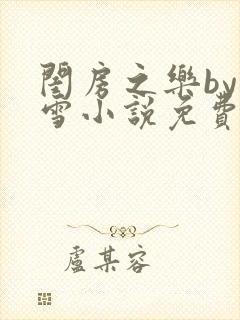 閨房之樂by
雪小說免費
盧某容